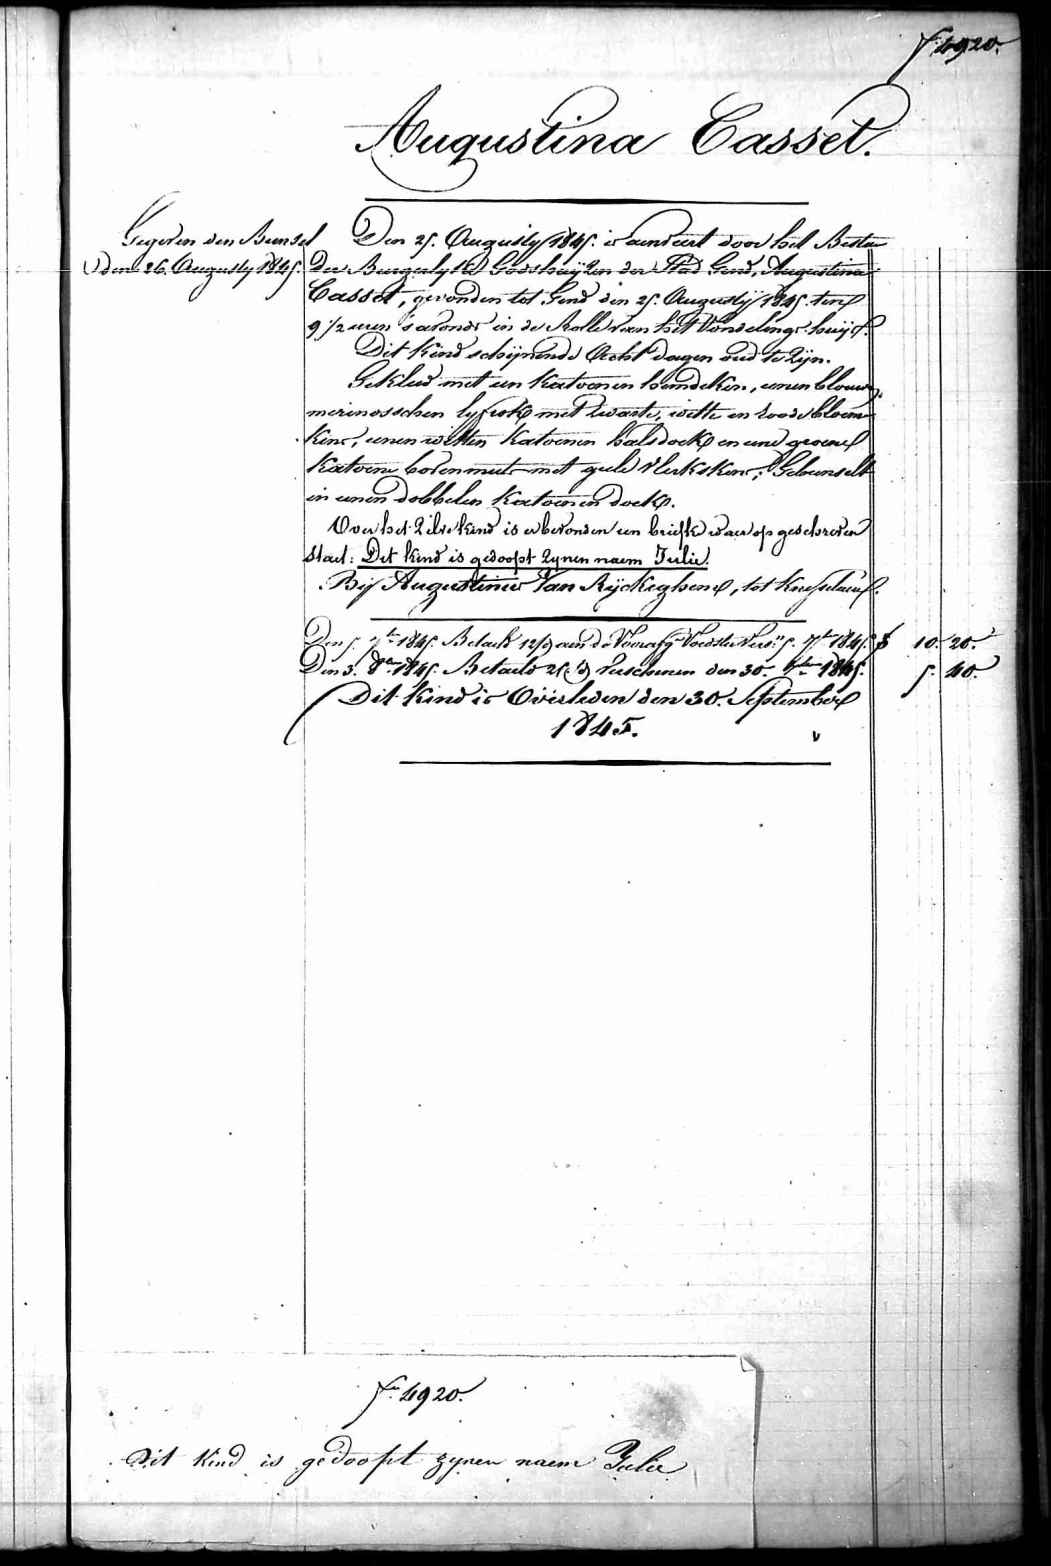 f. 4920.
Augustina Casset.
Gegeven den Bunsel
den 26. Augusty 1845.
Den 25. Augusty 1845. is aenveert door het Bestu
Der Burgerlyke Godshuijzen der Stad Gend, Augustina
Casset, gevonden tot Gend den 25. Augustij 1845. ten
9 1/2 uren s'avonds in de Rolle van het Vondelings-huijs.
Dit Kind schijnende Acht dagen oud te Zijn.
Gekleed met een Katoenen hemdeken, eenen blouw
merinosschen lyfrok met zwarte, witte en roode bloem
kens, eenen witten Katoenen halsdoek en eene groene
Katoene bovenmuts met geele vlekskens; Gebunselt
in eenen dobbelen Katoenen doek.
Over het Zelve kind is er bevonden een briefke waer op geschreven
staet: Dit kind is gedoopt Zynen naem Julie.
Bij Augustinus Van Ryckeghem, tot Knesselaere.
Den 5. 7bre 1845. Betaelt 12 aen de Voedster 5. 7bre 1845. 10. 20.
Den 3. 8bre 1845. Betaelt 25 Verschenen den 30. 7bre 1845. 5. 40.
Dit Kind is Overleden den 30. September
1845.
f. 4920.
Dit Kind is gedoopt zynen naem Julie